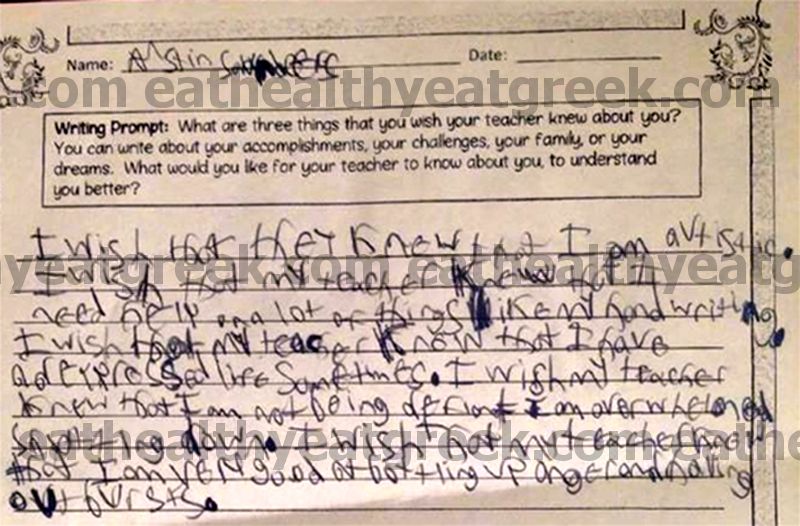 Name: Austin
Date:
com eathealthyeatgreek.com
Writing Prompt: What are three things that you wish your teacher knew about you?
You can write about your accomplishments, your challenges, your family, or your
dreams. What would you like for your teacher to know about you, to understand
you better?
I wish that they knew that I am avtistic.
yeatgreek.com eathealthyeatg
I wish that my teacher knew that I
need help on a lot of things like my handwriting.
I wish that my teacher know that I have
a deypressed life Sometimes. I wish my teacher
knew that I am not being defiant I am overwhelmed
shutting down. I wish that my teacher knew
eathealthyeatgreek.com
that I am very good at bottling up anger and having
outbursts.